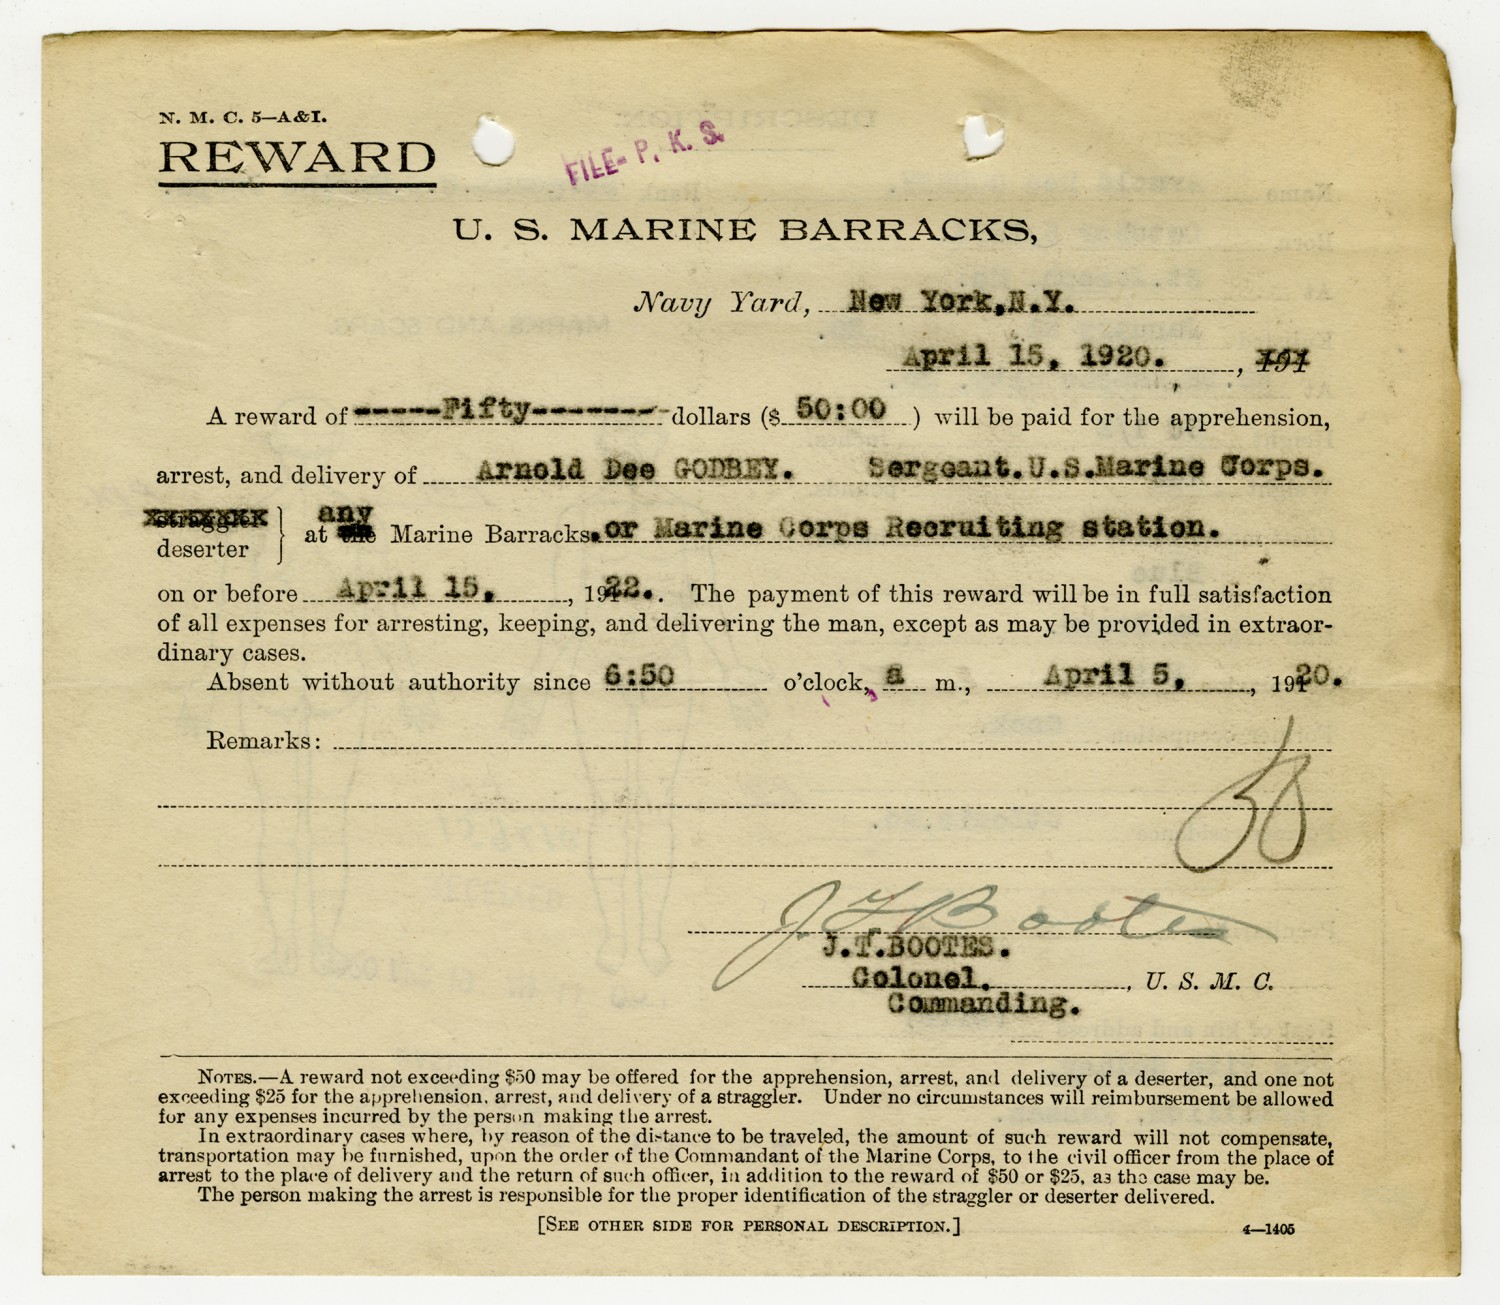 N. M. C. 5—A&I.
REWARD
FILE- P. K. S.
U. S. MARINE BARRACKS,
Navy Yard, New York,N.Y.
April 15, 1920. , 191
A reward of -----Fifty-------- dollars ($ 50:00 ) will be paid for the apprehension,
arrest, and delivery of Arnold Dee GODBEY. Sergeant.U.S.Marine Corps.
straggler
deserter } at any the Marine Barracks.or Marine Corps Recruiting station.
on or before April 15, , 1922.. The payment of this reward will be in full satisfaction
of all expenses for arresting, keeping, and delivering the man, except as may be provided in extraor-
dinary cases.
Absent without authority since 6:50 o'clock, a m., April 5, , 1920.
Remarks:
J.T. Bootes
J.T.BOOTES.
Colonel. , U. S. M. C.
Commanding.
NOTES.—A reward not exceeding $50 may be offered for the apprehension, arrest, and delivery of a deserter, and one not
exceeding $25 for the apprehension, arrest, and delivery of a straggler. Under no circumstances will reimbursement be allowed
for any expenses incurred by the person making the arrest.
In extraordinary cases where, by reason of the distance to be traveled, the amount of such reward will not compensate,
transportation may be furnished, upon the order of the Commandant of the Marine Corps, to the civil officer from the place of
arrest to the place of delivery and the return of such officer, in addition to the reward of $50 or $25, as the case may be.
The person making the arrest is responsible for the proper identification of the straggler or deserter delivered.
[SEE OTHER SIDE FOR PERSONAL DESCRIPTION.]
4—1405